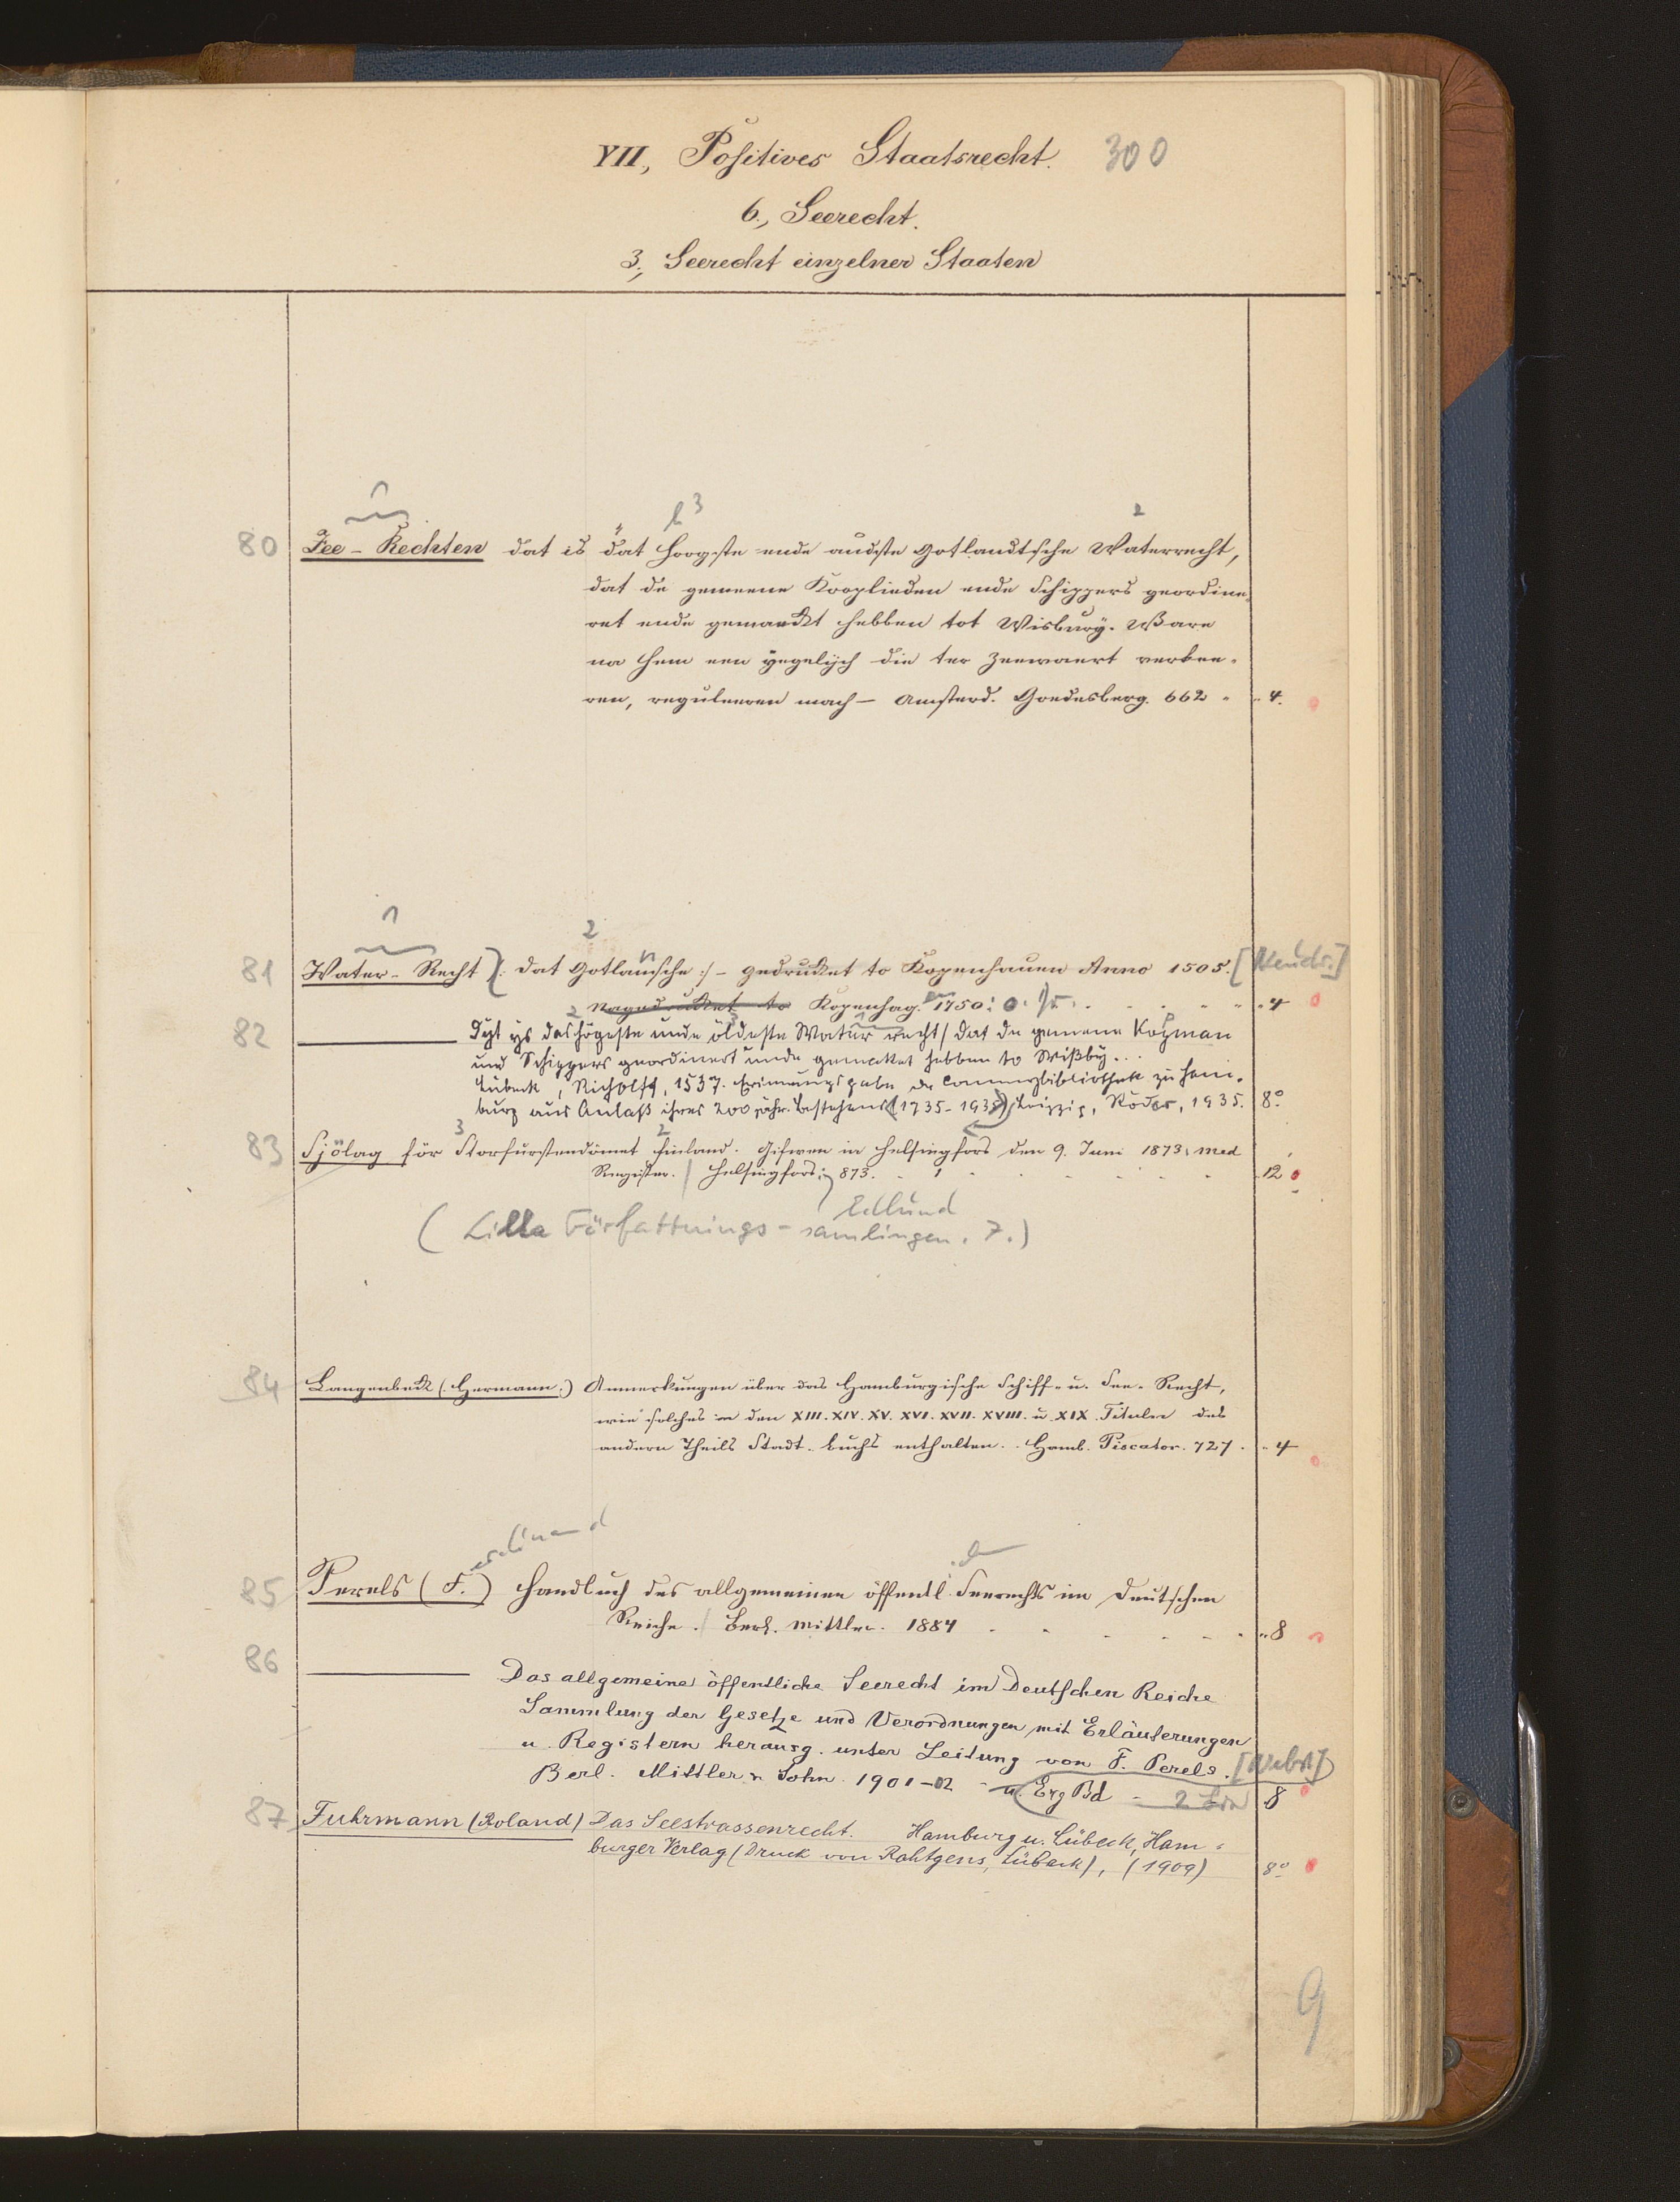 VII., Positives Staatsrecht. 300
6., Seerecht.
3., Seerecht einzelner Staaten
80 Zee-Rechten dat is dat hoogste ende audste Gotlandtsche Waterrecht,
dat de gemeene Kooplieden ende Schippers geordine-
ret ende gemaeckt hebben tot Wisbuÿ. Ware
na hem een yegelijch die ter Zeewaert verkee-
ren, reguleeren mach — Amsterd. Goedesberg. 662 4.
81 Water-Recht (: dat Gotlannsche :) — gedrucket to Kopenhauen Anno 1505. [Neudr.]
Nagedrucket to Kopenhag. 1750. 4
82 Dyt ys das högeste unde öldeste Watar recht / dat de gemene Kopman
und Schippers geordineert unde gemaket hebben to Wißby...
Lübeck, Richolff, 1537. Erinnerungsgabe der Commerzbibliothek zu Ham-
burg aus Anlaß ihres 200 jähr. Bestehens (1735-1935) Leipzig, Röder, 1935. 8°
83 Sjölag för Storfurstendömet Finland. Gifwen in Helsingfors den 9. Juni 1873, med
Register. Helsingfors, 873. 12
Edlund
(Lilla Författnings-samlingen. 7.)
84 Langenbeck (: Hermann :) Anmerkungen über das Hamburgische Schiff- u. See-Recht,
wie solches in den XIII. XIV. XV. XVI. XVII. XVIII. u. XIX. Tituln des
andern Theils Stadt-buchs enthalten. Hamb. Piscator. 727. 4
erdinand
85 Perels (F.) Handbuch des allgemeinen öffentl. Seerechts im Deutschen
Reiche. Berl. Mittler. 1884 8
86 Das allgemeine öffentliche Seerecht im Deutschen Reiche
Sammlung der Gesetze und Verordnungen mit Erläuterungen
u. Registern herausg. unter Leitung von F. Perels. [Nebst]
Berl. Mittler u. Sohn. 1901-02 - u. Erg Bd - 8
87 Fuhrmann (Roland) Das Seestrassenrecht. Hamburg u. Lübeck, Ham-
burger Verlag (Druck von Rahtgens, Lübeck), (1909) 8°
9